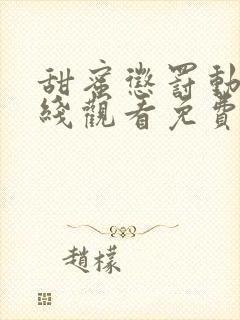 甜蜜懲罰動
綫觀看免費
趙檬